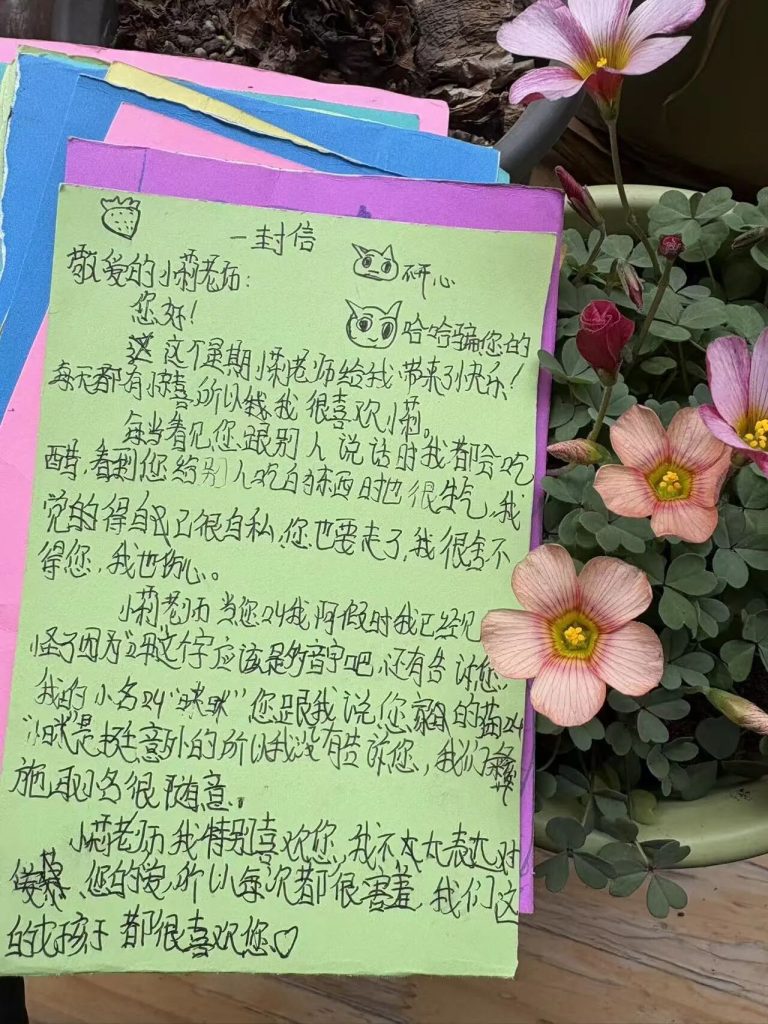 一封信
研心
敬爱的小莉老师:
您好!
哈哈骗您的
这个星期小莉老师给我带来了快乐!
每天都有惊喜所以我很喜欢小莉。
每当看见您跟别人说话时我都会吃
醋,看到您给别人吃的东西时也很生气,我
觉的得自己很自私,您也要走了,我很舍不
得您,我也伤心。
小莉老师当您叫我阿假时我已经见
怪了因为这个字应该是多音字吧,还有告诉您,
我的小名叫“咪咪”您跟我说您家的猫叫
“小咪”是挺意外的所以我没有告诉您,我们彝
施取小名很随意。
小莉老师我特别喜欢您,我不太太表达对
您的爱,所以每次都很害羞,我们这
的女孩子都很喜欢您♡